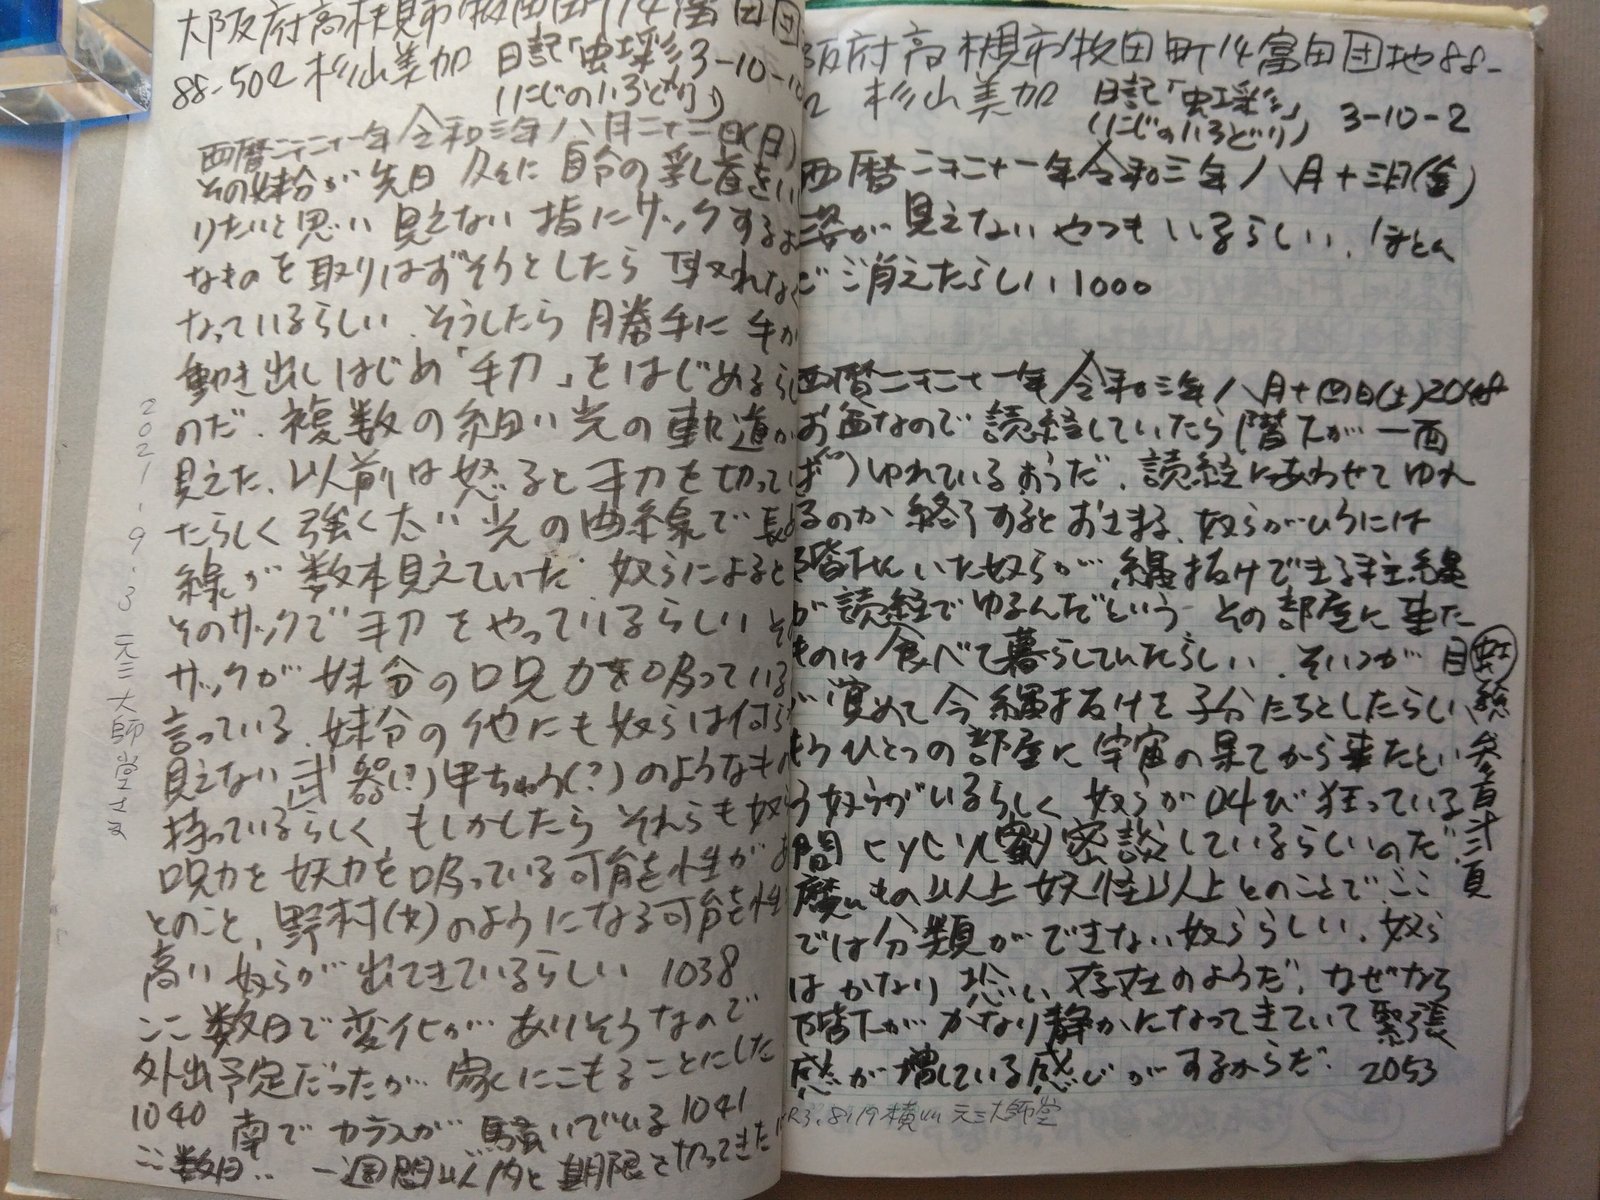 大阪府高槻市牧田町14富田団
88-502 杉山美加 日記「虹彩 3-10-1
(にじのいろどり)
西暦二千二十一年令和三年八月二十二日(日)
その妹分が先日 久々に自分の乳首を
りたいと思い 見えない 指にサックする
なものを取りはずそうとしたら 取れな
なっているらしい、そうしたら 勝手に 手が
動き出しはじめ「手刀」をはじめるらし
のだ、複数の細い光の軌道が
見えた、以前は怒ると手刀を切って
たらしく強く太い光の曲線で
線が数本見えていた、奴らによると
そのサックで手刀をやっているらしい そ
サックが妹分の呪力を吸っている
言っている、妹分の他にも奴らは何
見えない武器(?)甲ちゅう(?)のようなもの
持っているらしく もしかしたら それらも 奴
呪力を妖力を吸っている可能性が
とのこと、野村(女)のようになる可能性
高い奴らが出てきているらしい 1038
ここ数日で変化がありそうなので
外出予定だったが 家にこもることにした
1040 南でカラスが騒いでいる 1041
ここ数日‥一週間以内と期限を切ってきた
2021.9.3 元三大師堂
阪府高槻市牧田町14富田団地88-
2 杉山美加 日記「虹彩」 3-10-2
(にじのいろどり)
西暦二千二十一年令和三年八月十三日(金)
姿が見えないやつもいるらしい、ほとん
ど消えたらしい1000
西暦二千二十一年令和三年八月十四日(土)2048
お盆なので読経していたら階下が一面
ゆれているようだ、読経にあわせてゆれ
るのか終了するとおさまる、奴らがいうには
階下にいた奴らが、縄抜けできる注縄
が読経でゆるんだという その部屋に来た
ものは食べて暮らしていたらしい、そいつが目
が覚めて今縄抜けを子分たちとしたらしい
もうひとつの部屋に宇宙の果てから来たとい
う奴らがいるらしく 奴らが叫び狂っている
間ヒソヒソ密談しているらしいのだ、
魔いもの以上妖怪以上とのことで、ここ
では分類ができない奴ららしい、奴ら
はかなり恐い存在のようだ、なぜなら
階下がかなり静かになってきていて緊張
感が増している感じがするからだ 2053
R3.8.19 横川 元三大師堂
参百弐頁